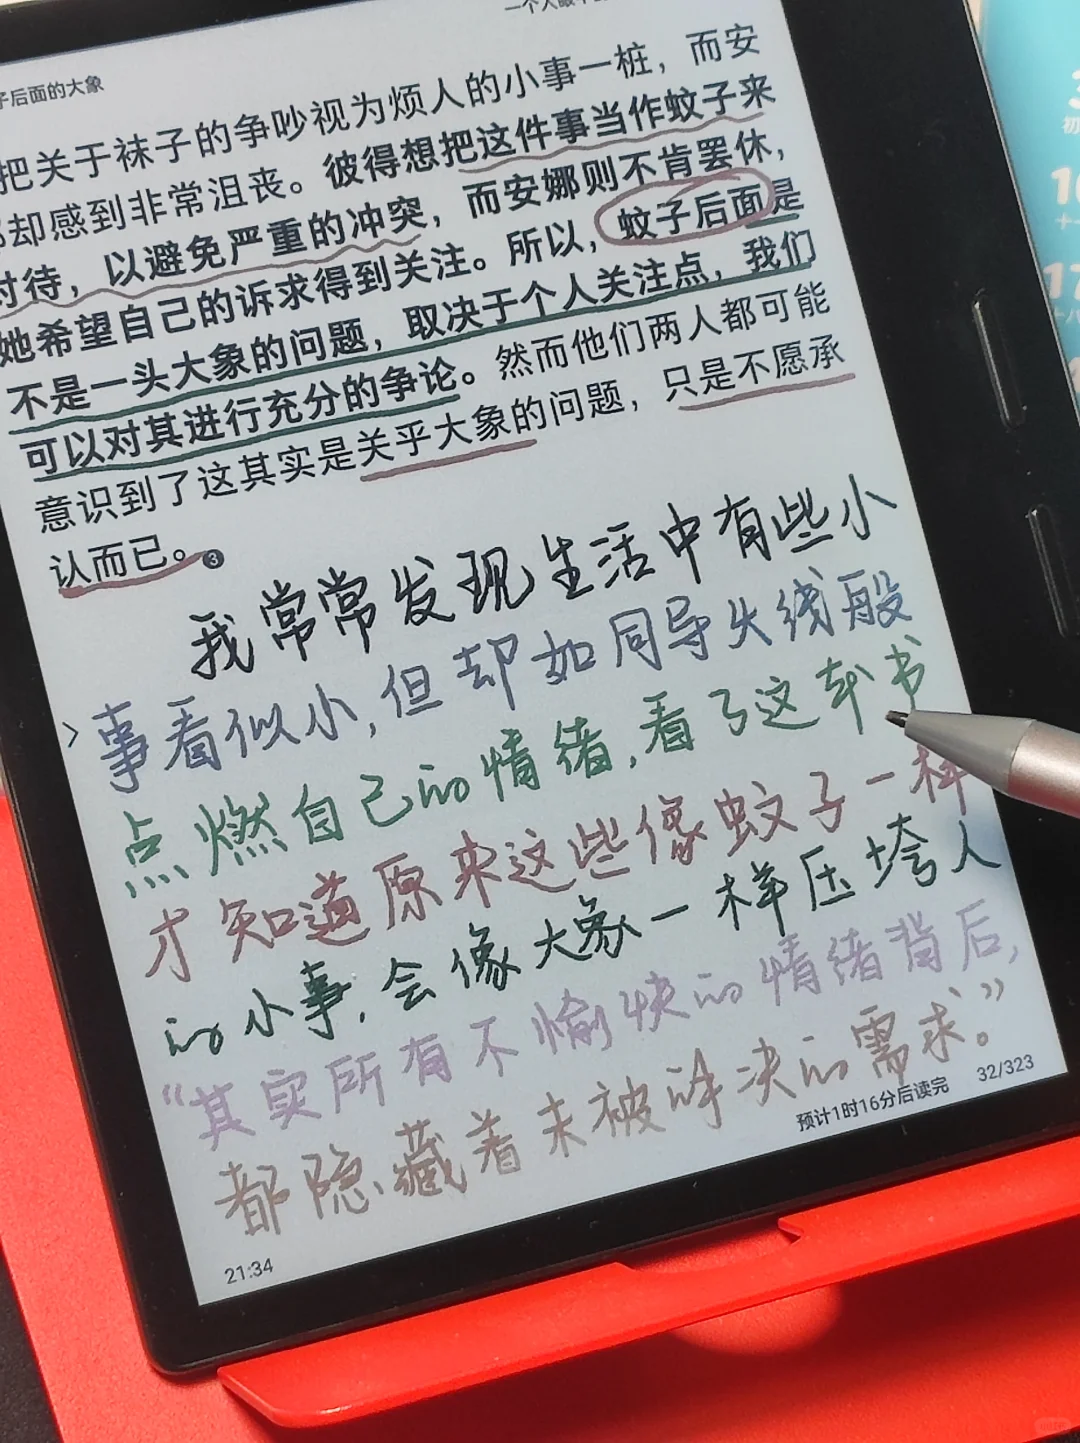 子后面的大象
把关于袜子的争吵视为烦人的小事一桩，而安
却感到非常沮丧。彼得想把这件事当作蚊子来
对待，以避免严重的冲突，而安娜则不肯罢休，
她希望自己的诉求得到关注。所以，蚊子后面是
不是一头大象的问题，取决于个人关注点，我们
可以对其进行充分的争论。然而他们两人都可能
意识到了这其实是关乎大象的问题，只是不愿承
认而已。③
我常常发现生活中有些小
事看似小，但却如同导火线般
点燃自己的情绪，看了这本书
才知道原来这些像蚊子一样
的小事，会像大象一样压垮人
“其实所有不愉快的情绪背后，
都隐藏着未被解决的需求。”
预计1时16分后读完 32/323
21:34